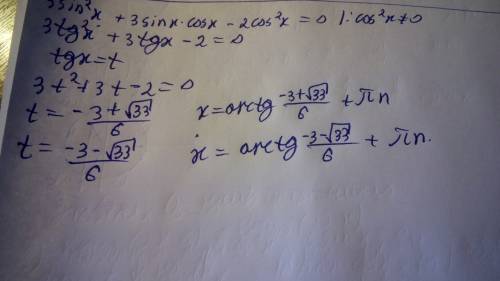 3sin²x + 3sinx·cosx - 2cos²x = 0 |: cos²x ≠ 0
3tg²x + 3tgx - 2 = 0
tgx = t
3t² + 3t - 2 = 0
t = (-3 + √33)/6    x = arctg (-3 + √33)/6 + πn
t = (-3 - √33)/6    x = arctg (-3 - √33)/6 + πn.